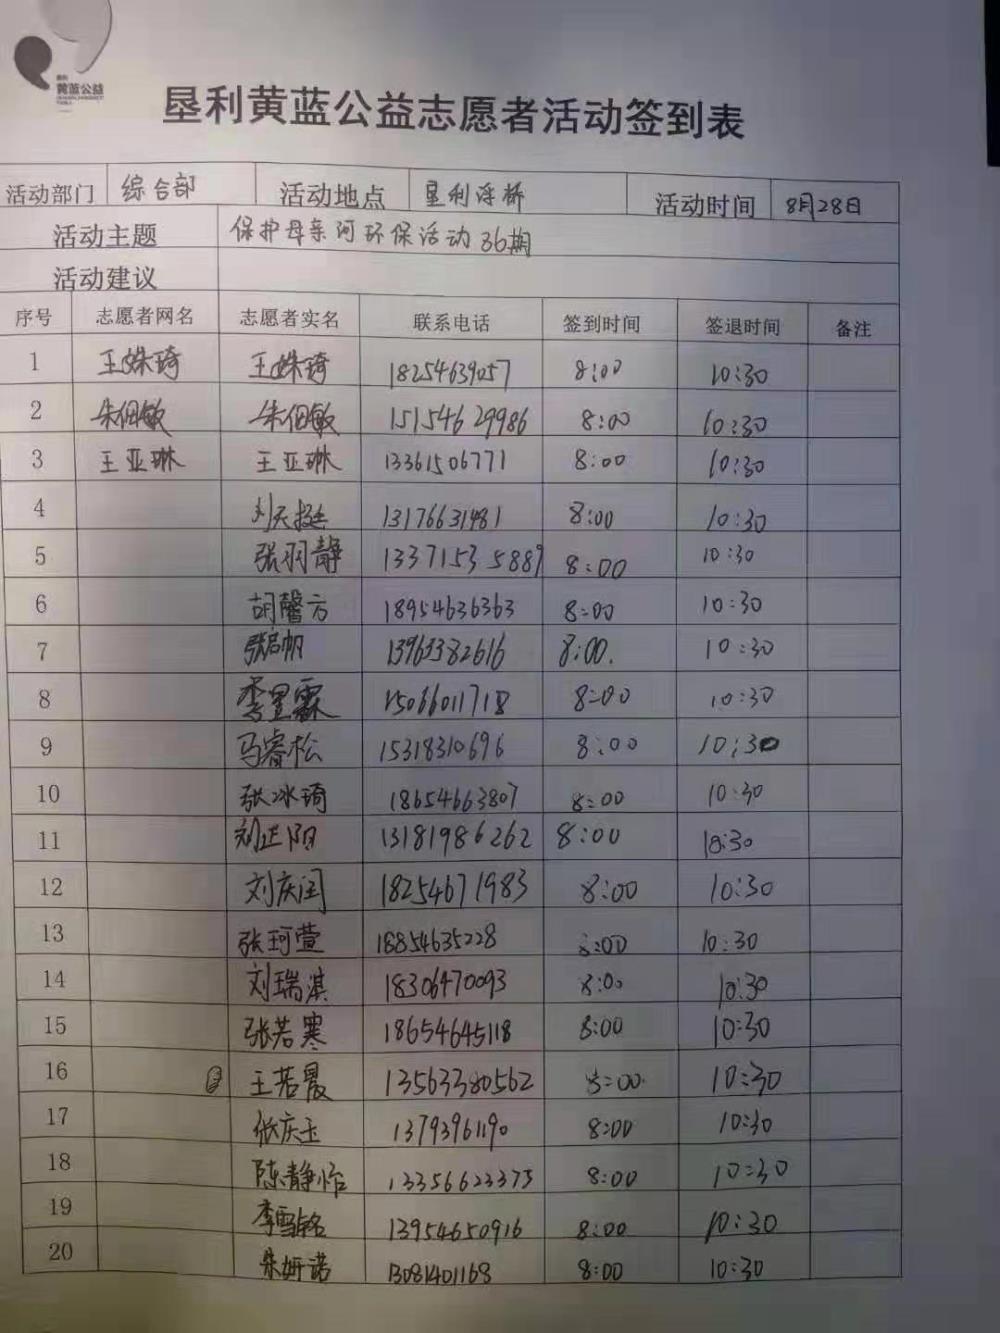 黄蓝公益
垦利黄蓝公益志愿者活动签到表
活动部门 综合部 活动地点 垦利浮桥 活动时间 8月28日
活动主题 保护母亲河环保活动36期
活动建议
序号 志愿者网名 志愿者实名 联系电话 签到时间 签退时间 备注
1 王姝琦 王姝琦 18254639057 8:00 10:30
2 朱佃敏 朱佃敏 15154629986 8:00 10:30
3 王亚琳 王亚琳 13361506771 8:00 10:30
4 刘天挺 13176631481 8:00 10:30
5 张羽静 13371535889 8:00 10:30
6 胡馨方 18954636363 8:00 10:30
7 张启帆 13963382616 8:00. 10:30
8 李星霖 15066011718 8:00 10:30
9 马睿松 15318310696 8:00 10:30
10 张冰琦 18654663807 8:00 10:30
11 刘正阳 13181986262 8:00 10:30
12 刘庆闰 18254671983 8:00 10:30
13 张珂萱 18854635228 8:00 10:30
14 刘瑞淇 18306470093 8:00 10:30
15 张若寒 18654645118 8:00 10:30
16 王若晟 13563380562 8:00 10:30
17 张庆玉 13793961190 8:00 10:30
18 陈静怡 13356623375 8:00 10:30
19 李雪铭 13954650916 8:00 10:30
20 朱妍诺 13081401168 8:00 10:30